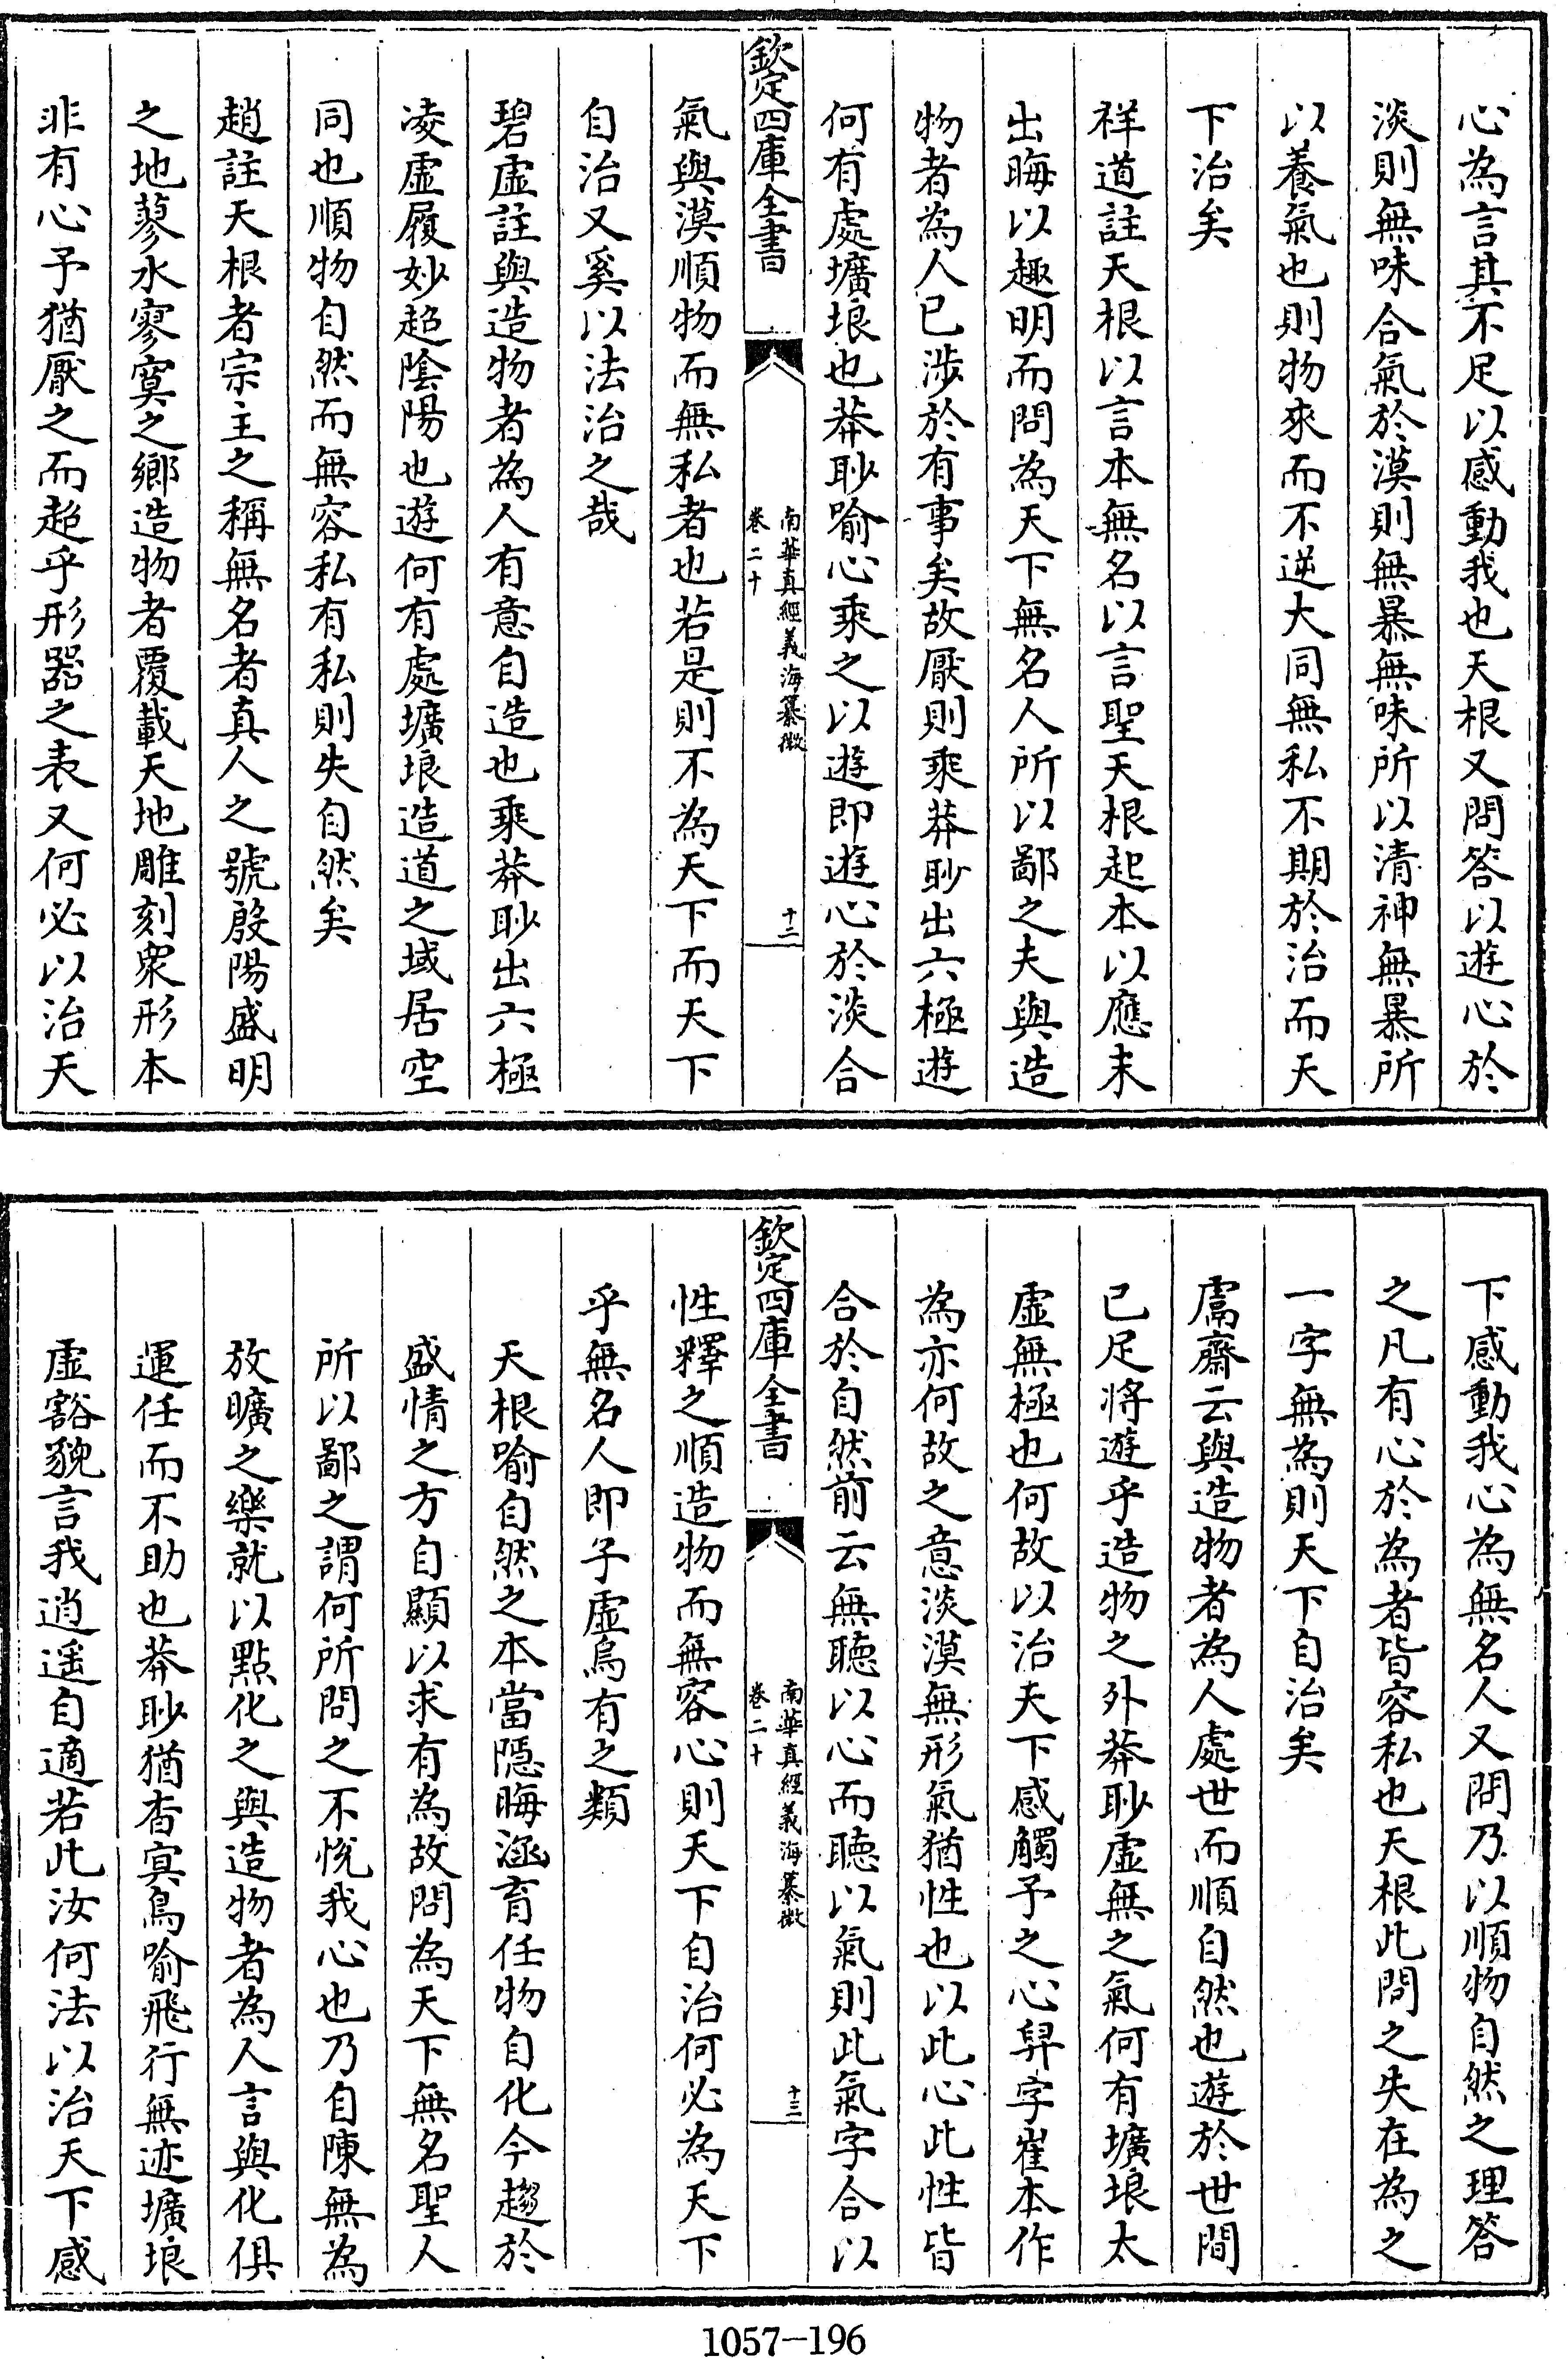 心為言其不足以感動我也天根又問答以遊心於
淡則無味合氣於漠則無暴無味所以清神無暴所
以養氣也則物來而不逆大同無私不期於治而天
下治矣
祥道註天根以言本無名以言聖天根起本以應末
出晦以趣明而問為天下無名人所以鄙之夫與造
物者為人已涉於有事矣故厭則乘莽眇出六極遊
何有處壙埌也莽眇喻心乘之以遊即遊心於淡合
欽定四庫全書
南華真經義海纂微
卷二十
十二
氣與漠順物而無私者也若是則不為天下而天下
自治又奚以法治之哉
碧虛註與造物者為人有意自造也乘莽眇出六極
凌虛履妙超陰陽也遊何有處壙埌造道之域居空
同也順物自然而無容私有私則失自然矣
趙註天根者宗主之稱無名者真人之號殷陽盛明
之地蓼水寥寞之鄉造物者覆載天地雕刻衆形本
非有心予猶厭之而超乎形器之表又何必以治天
下感動我心為無名人又問乃以順物自然之理答
之凡有心於為者皆容私也天根此問之失在為之
一字無為則天下自治矣
鬳齋云與造物者為人處世而順自然也遊於世間
已足將遊乎造物之外莽眇虛無之氣何有壙埌太
虛無極也何故以治天下感觸予之心帠字崔本作
為亦何故之意淡漠無形氣猶性也以此心此性皆
合於自然前云無聽以心而聽以氣則此氣字合以
欽定四庫全書
南華真經義海纂微
卷二十
十三
性釋之順造物而無容心則天下自治何必為天下
乎無名人即子虛烏有之類
天根喻自然之本當隱晦涵育任物自化今趨於
盛情之方自顯以求有為故問為天下無名聖人
所以鄙之謂何所問之不悅我心也乃自陳無為
放曠之樂就以點化之與造物者為人言與化俱
運任而不助也莽眇猶杳冥鳥喻飛行無迹壙埌
虛豁貌言我逍遥自適若此汝何法以治天下感
1057-196